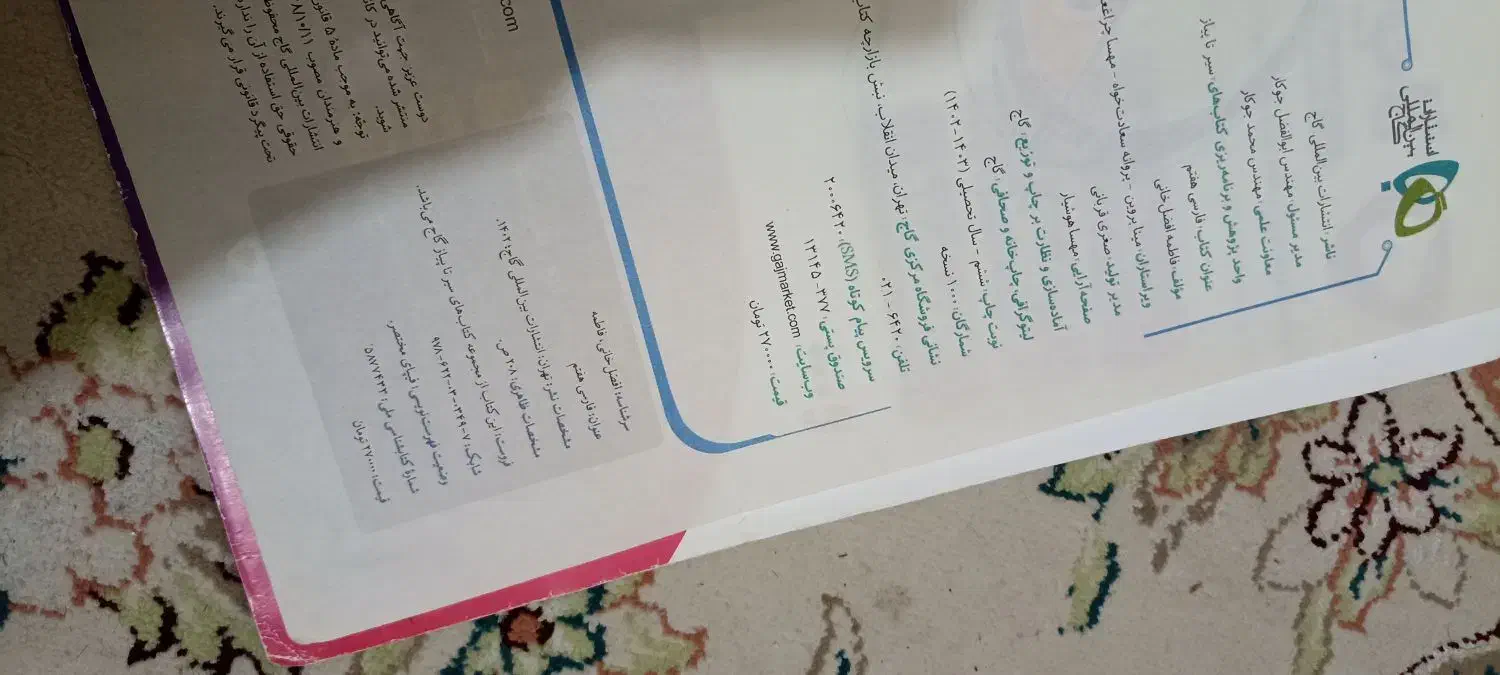 انتشارات
بین‌المللی
گاج
ناشر: انتشارات بین‌المللی گاج
مدیر مسئول: مهندس ابوالفضل جوکار
معاونت علمی: مهندس محمد جوکار
واحد پژوهش و برنامه‌ریزی کتاب‌های سیر تا پیاز
عنوان کتاب: فارسی هفتم
مؤلف: فاطمه افضل‌خانی
ویراستاران: مینا پروین - پروانه سعادت‌خواه - مهسا
مدیر تولید: صغری قربانی
صفحه‌آرایی: مهسا هوشیار
آماده‌سازی و نظارت بر چاپ و توزیع: گاج
لیتوگرافی، چاپ‌خانه و صحافی: گاج
نوبت چاپ: ششم - سال تحصیلی (۱۴۰۳-۱۴۰۲)
شمارگان: ۱۰۰۰ نسخه
نشانی فروشگاه مرکزی گاج: تهران، میدان انقلاب، نبش بازارچه
تلفن: ۶۴۲۰-۰۲۱
سرویس پیام کوتاه (SMS): ۲۰۰۰۶۴۲۰
صندوق پستی: ۳۷۷-۱۳۱۴۵
وب‌سایت: www.gajmarket.com
قیمت: ۲۷۰۰۰۰ تومان
سرشناسه: افضل‌خانی، فاطمه
عنوان: فارسی هفتم
مشخصات نشر: تهران: انتشارات بین‌المللی گاج، ۱۴۰۲.
مشخصات ظاهری: ۲۰۸ ص.
فروست: این کتاب از مجموعه کتاب‌های سیر تا پیاز گاج می‌باشد.
شابک: ۷-۰۳۴۹-۰۳-۶۲۲-۹۷۸
وضعیت فهرست‌نویسی: فیپای مختصر.
شمارهٔ کتابشناسی ملی: ۵۸۷۷۴۳۳
قیمت: ۲۷۰۰۰۰ تومان
.com
دوست عزیز: جهت آگاهی
منتشر شده می‌توانید در
شوید.
توجه: به موجب مادهٔ ۵ قانون
و هنرمندان مصوب ۸/۱۰/۱۱
انتشارات بین‌المللی گاج محفوظ
حقوقی حق استفاده از آن را ندارد
تحت پیگرد قانونی قرار می‌گیرند.